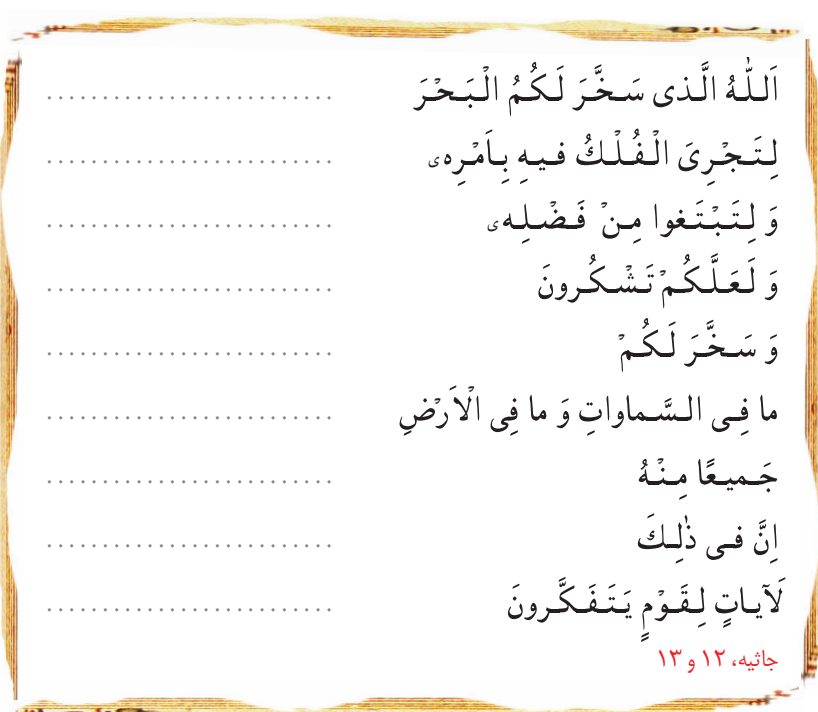 اَللّٰهُ الَّذی سَخَّرَ لَكُمُ الْبَحْرَ ..........................
لِتَجْرِیَ الْفُلْكُ فیهِ بِاَمْرِهی ..........................
وَ لِتَبْتَغوا مِنْ فَضْلِهی ..........................
وَ لَعَلَّكُمْ تَشْكُرونَ ..........................
وَ سَخَّرَ لَكُمْ ..........................
ما فِی السَّماواتِ وَ ما فِی الْاَرْضِ ..........................
جَمیعًا مِنْهُ ..........................
اِنَّ فی ذٰلِكَ ..........................
لَآیاتٍ لِقَوْمٍ یَتَفَكَّرونَ ..........................
جاثیه، ۱۲ و ۱۳